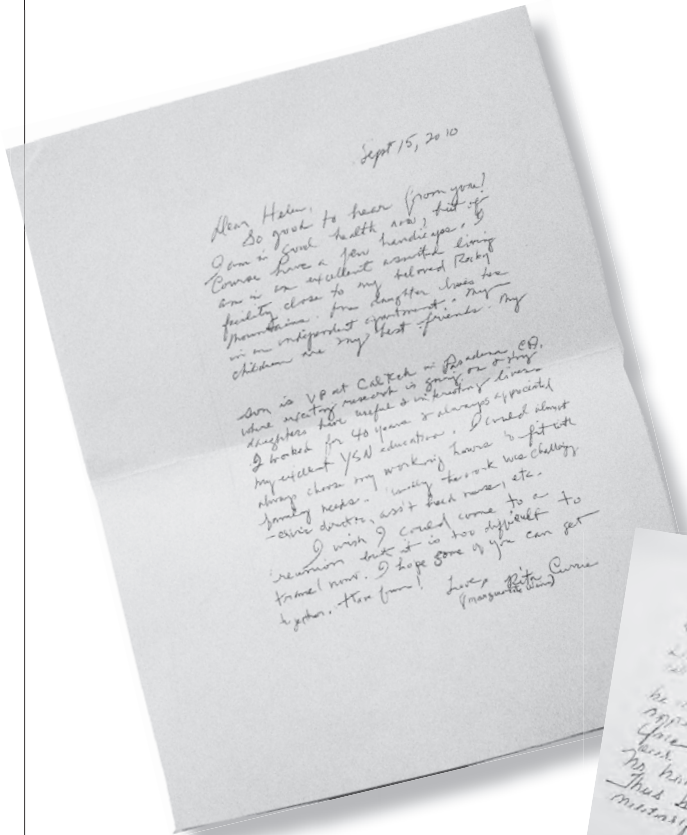 Sept 15, 2010
Dear Helen,
So good to hear from you!
I am in good health now, but of
course have a few handicaps. I
am in an excellent assisted living
facility close to my beloved Rocky
Mountains. One daughter lives here
in an independent apartment. My
children are my best friends. My
son is VP at CalTech in Pasadena, CA.
where exciting research is going on & my
daughters have useful & interesting lives.
I worked for 40 years & always appreciated
my excellent YSN education. I could almost
always choose my working hours to fit with
family needs. Usually the work was challeng
- clinic director, ass't head nurse, etc.
I wish I could come to a
reunion but it is too difficult to
travel now. I hope some of you can get
together. Have fun!
Love, Rita Currie
(Marguerite
be
no
Thus